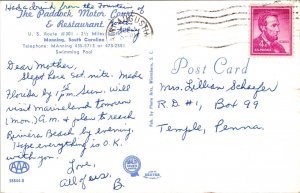 Had a drink from the Fountain of
The Paddock Motor Court
& Restaurant
U. S. Route
Manning, South Carolina
Telephone Manning 435-5215 or 473-2501
Swimming Pool
Dear Mother,
Slept here Sat. nite. Made
Florida by 1 P.M. Sun. Will
visit marineland tomorrow
Mon. A.M. & plan to reach
Riviera Beach by evening.
Hope everything is O.K.
with you.
Love,
All of us.
B.
AAA
Post Card
Mrs. Lillian Schaefer
R.D. #1, Box 99
Temple, Penna.
4¢